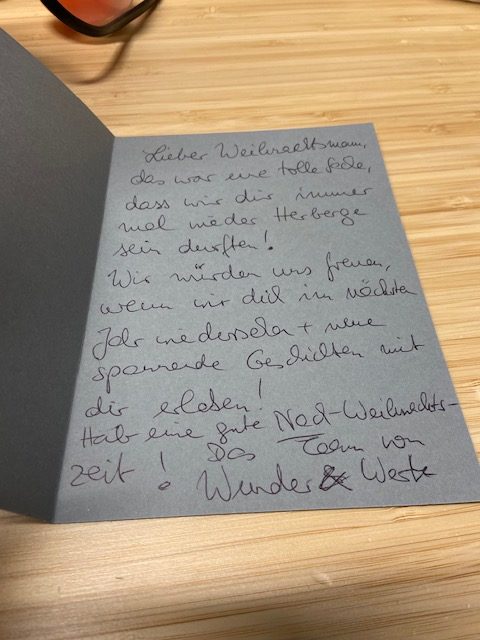 Lieber Weihnachtsmann,
das war eine tolle Sache,
dass wir dir immer
mal wieder Herberge
sein durften!
Wir würden uns freuen,
wenn wir dich im nächsten
Jahr wiedersehen + neue
spannende Geschichten mit
dir erleben!
Hab eine gute Nach-Weihnachts-
zeit! Das Team von
Wunder &